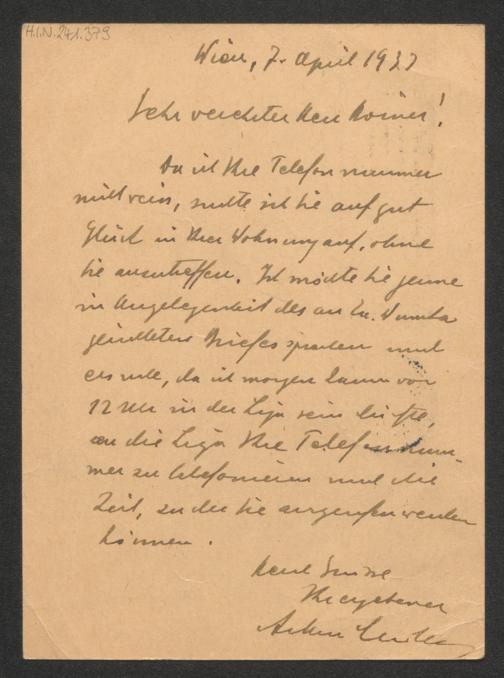 H.I.N. 241.379
Wien, 7. April 1937
Sehr verehrter Herr Körner!
Da ich Ihre Telefonnummer
nicht weiss, suchte ich Sie auf gut
Glück in Ihrer Wohnung auf, ohne
Sie anzutreffen. Ich möchte Sie gerne
in Angelegenheit des an Dr.
gerichteten Briefes sprechen und
ersuche, da ich morgen kaum vor
12 Uhr in der Liga sein dürfte,
an die Liga Ihre Telefonnum-
mer zu telefonieren und die
Zeit, zu der Sie angerufen werden
können.
Ihr ergebener